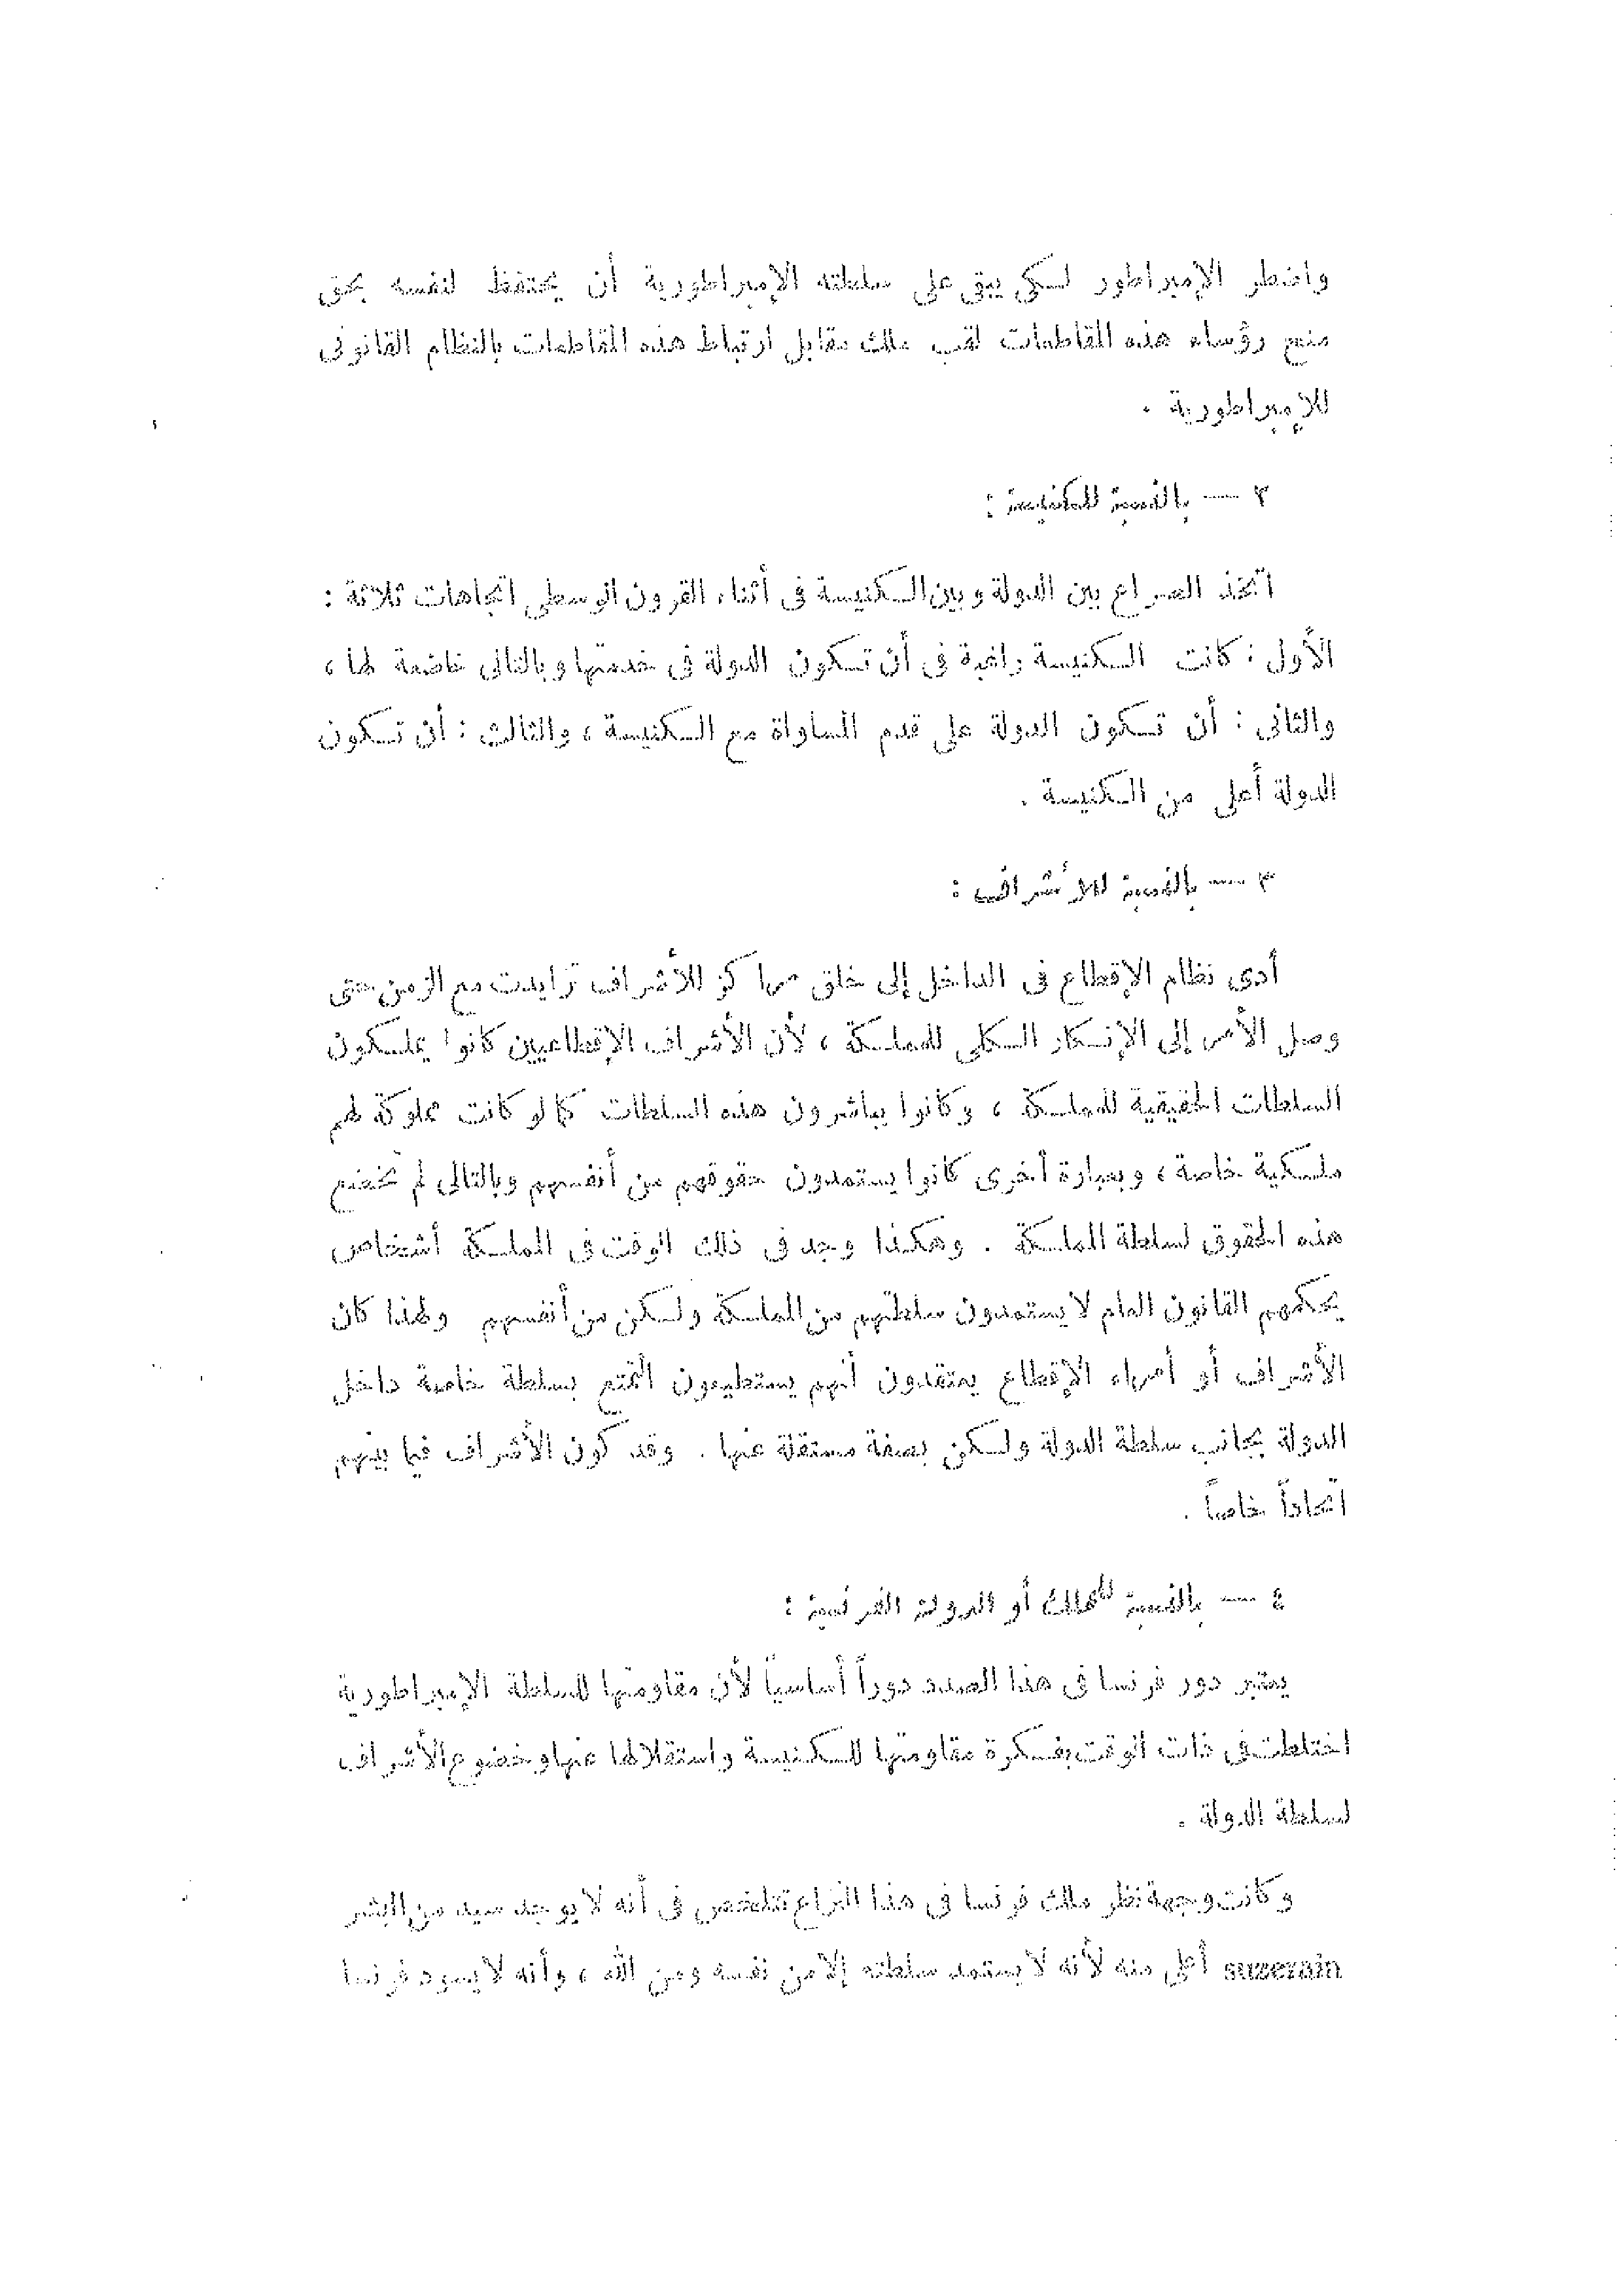 واضطر الإمبراطور لكى يبقى على سلطته الإمبراطورية أن يحتفظ لنفسه بحق
منح رؤساء هذه المقاطعات لقب ملك مقابل ارتباط هذه المقاطعات بالنظام القانونى
للإمبراطورية .
٢ — بالنسبة للكنيسة :
اتخذ الصراع بين الدولة وبين الكنيسة فى أثناء القرون الوسطى اتجاهات ثلاثة :
الأول : كانت الكنيسة راغبة فى أن تكون الدولة فى خدمتها وبالتالى خاضعة لها ،
والثانى : أن تكون الدولة على قدم المساواة مع الكنيسة ، والثالث : أن تكون
الدولة أعلى من الكنيسة .
٣ — بالنسبة للأشراف :
أدى نظام الإقطاع فى الداخل إلى خلق مراكز للأشراف تزايدت مع الزمن حتى
وصل الأمر إلى الإنكار الكلى للمملكة ، لأن الأشراف الإقطاعيين كانوا يملكون
السلطات الحقيقية للمملكة ، وكانوا يباشرون هذه السلطات كما لو كانت مملوكة لهم
ملكية خاصة ، وبعبارة أخرى كانوا يستمدون حقوقهم من أنفسهم وبالتالى لم تخضع
هذه الحقوق لسلطة المملكة . وهكذا وجد فى ذلك الوقت فى المملكة أشخاص
يحكمهم القانون العام لا يستمدون سلطتهم من المملكة ولكن من أنفسهم ولهذا كان
الأشراف أو أمراء الإقطاع يعتقدون أنهم يستطيعون التمتع بسلطة خاصة داخل
الدولة بجانب سلطة الدولة ولكن بصفة مستقلة عنها . وقد كون الأشراف فيما بينهم
اتحاداً خاصاً .
٤ — بالنسبة للملك أو الدولة الفرنسية :
يعتبر دور فرنسا فى هذا الصدد دوراً أساسياً لأن مقاومتها للسلطة الإمبراطورية
اختلطت فى ذات الوقت بفكرة مقاومتها للكنيسة واستقلالها عنها وخضوع الأشراف
لسلطة الدولة .
وكانت وجهة نظر ملك فرنسا فى هذا النزاع تتلخص فى أنه لا يوجد سيد من البشر
suzerain أعلى منه لأنه لا يستمد سلطته إلا من نفسه ومن الله ، وأنه لا يسود فرنسا